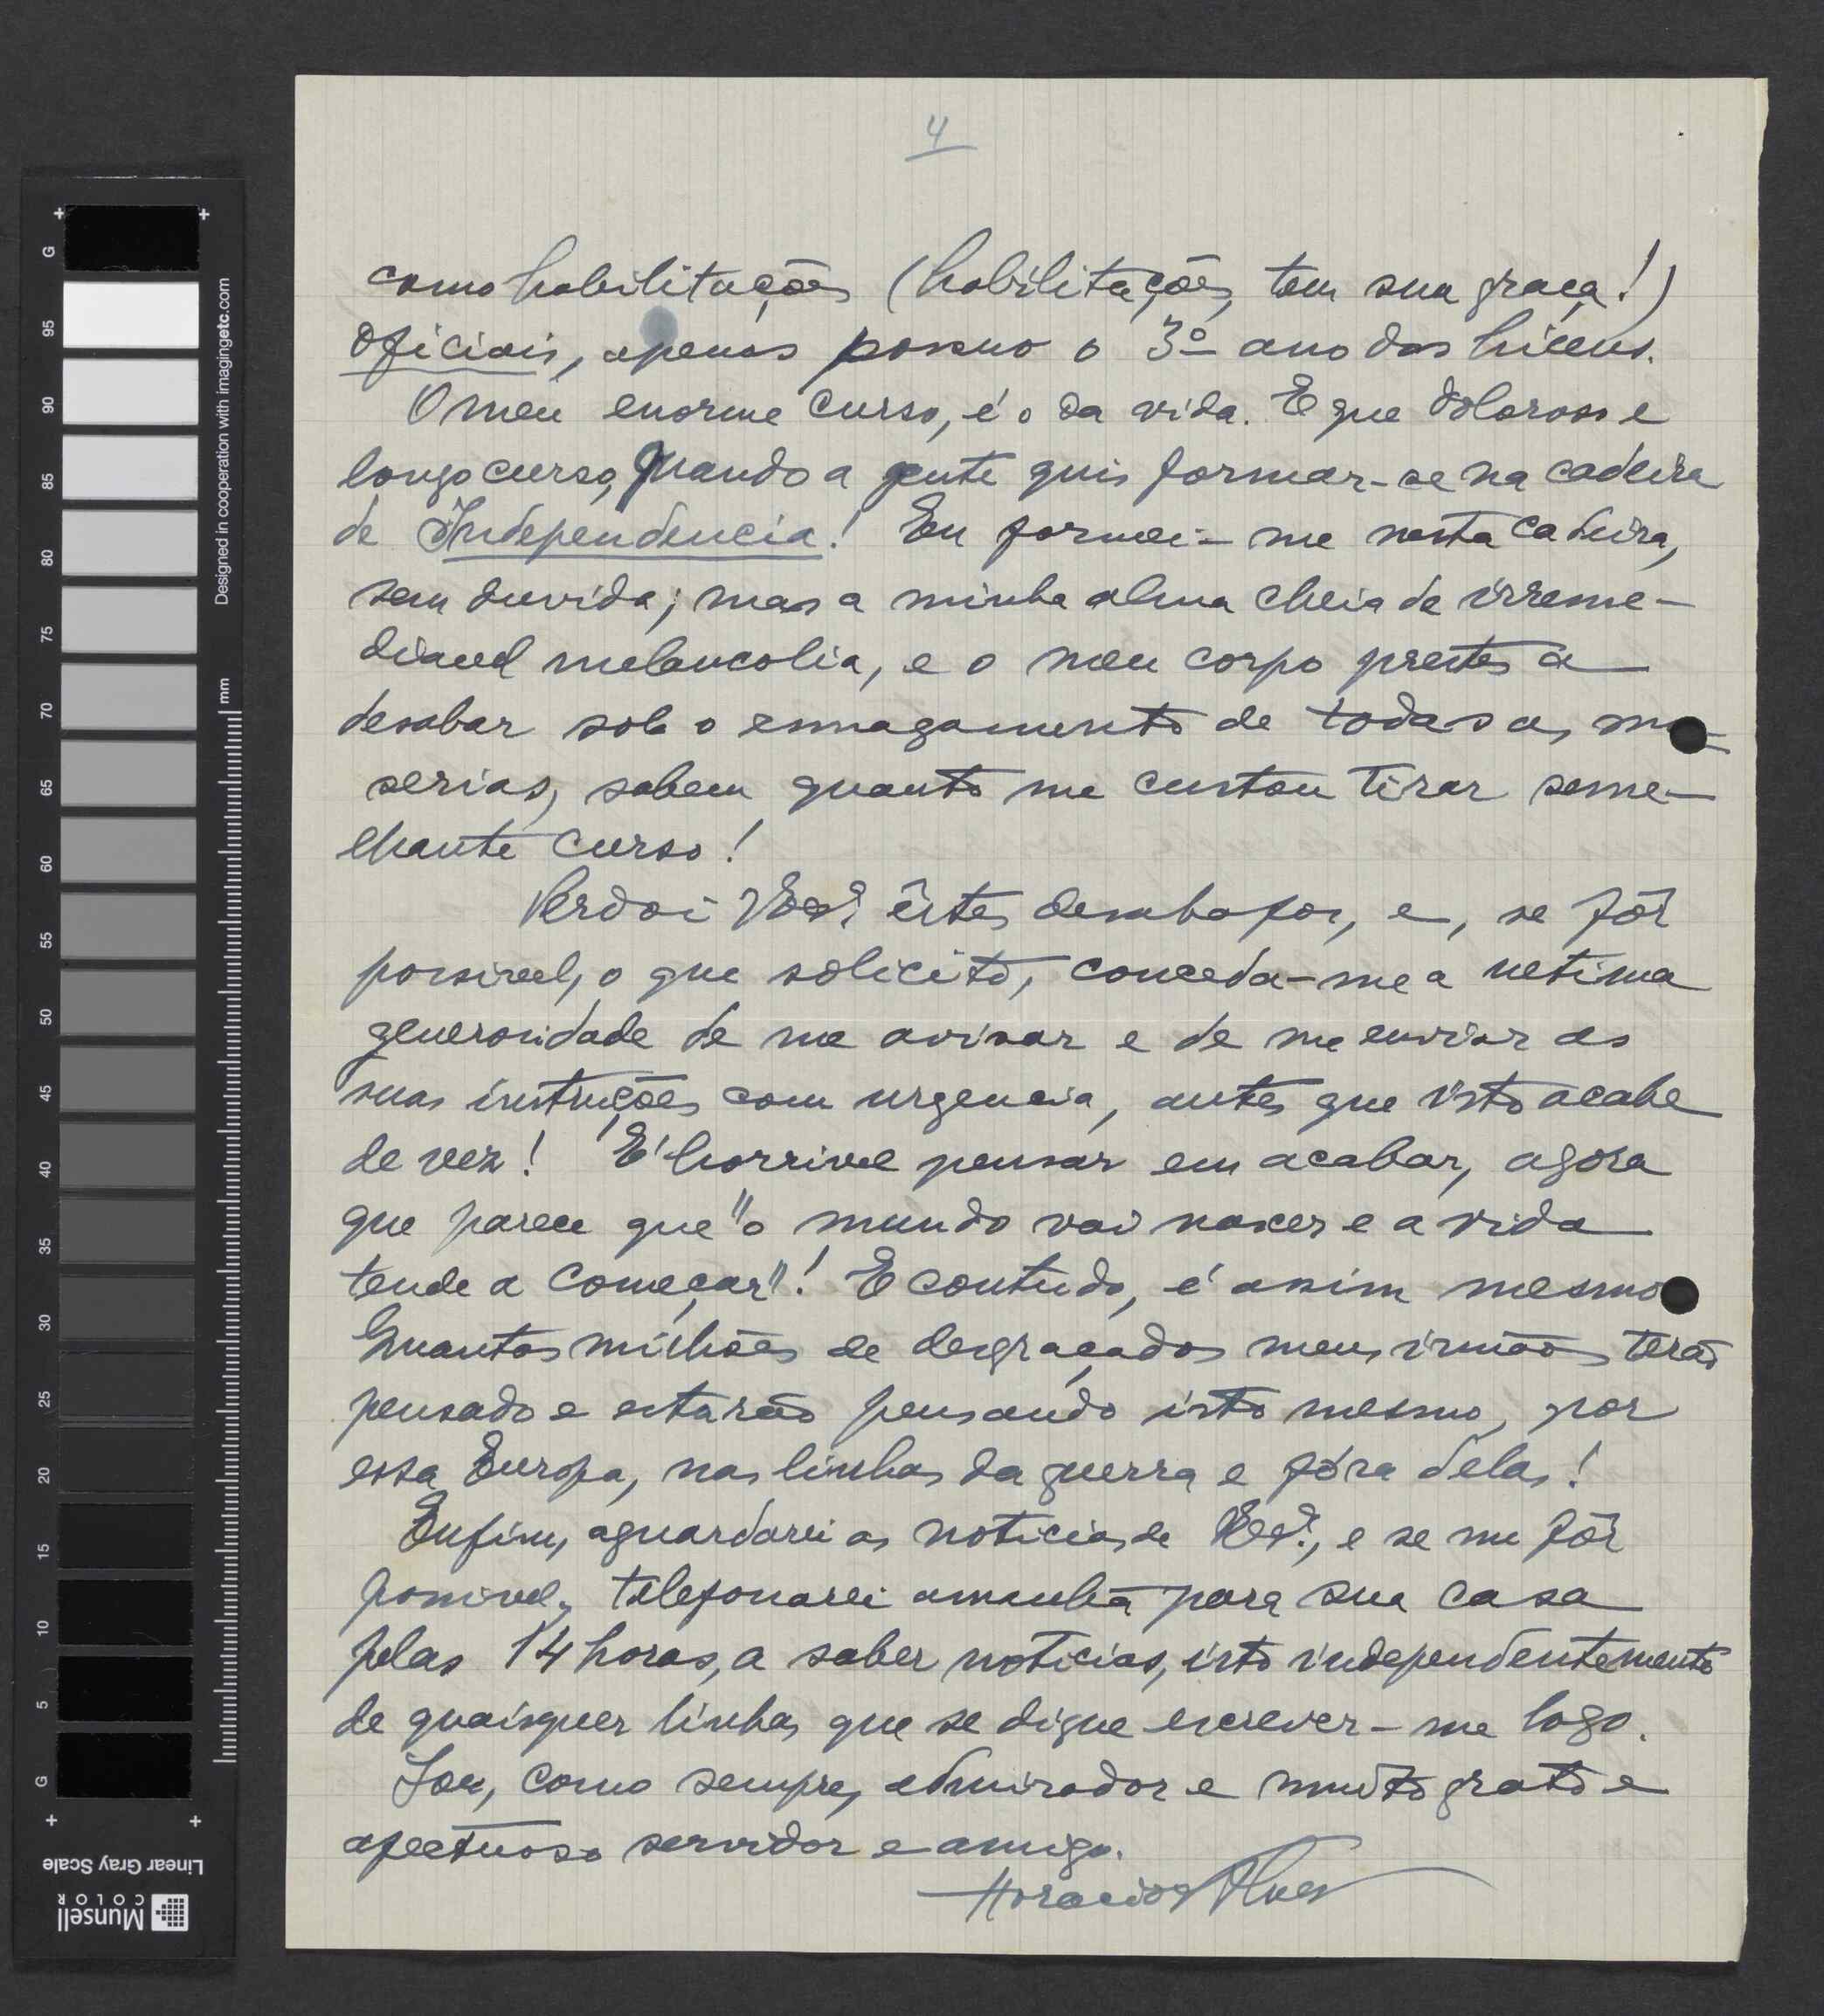 4
como habilitações (habilitações, tem sua graça!)
oficiais, apenas possuo o 3º ano dos liceus.
O meu enorme curso, é o da vida. E que doloroso e
longo curso, quando a gente quis formar-se na cadeira
de Independencia! Eu formei-me nesta cadeira,
sem duvida; mas a minha alma cheia de irreme-
diavel melancolia, e o meu corpo prestes a
desabar sob o esmagamento de todas as mi-
serias, sabem quanto me custou tirar seme-
lhante curso!
Perdoi êstes desabafos, e, se fôr
possivel, o que solicito, conceda-me a ultima
generosidade de me avisar e de me enviar as
suas instruções com urgencia, antes que isto acabe
de vez! É horrivel pensar em acabar, agora
que parece que "o mundo vai nascer e a vida
tende a começar"! E contudo, é assim mesmo
Quantos milhões de desgraçados meus irmãos terão
pensado e estarão pensando isto mesmo, por
essa Europa, nas linhas da guerra e fóra delas!
Enfim, aguardarei as noticias de e se me fôr
possivel, telefonarei amanhã para sua casa
pelas 14 horas, a saber noticias, isto independentemente
de quaisquer linhas que se digne escrever-me logo.
Sou, como sempre, admirador e muito grato e
afectuoso servidor e amigo.
Horacio Alves
G
95
90
85
80
75
70
65
60
55
50
45
40
35
30
25
20
15
10
5
G
mm
Designed in cooperation with imagingetc.com
Linear Gray Scale
Munsell
COLOR